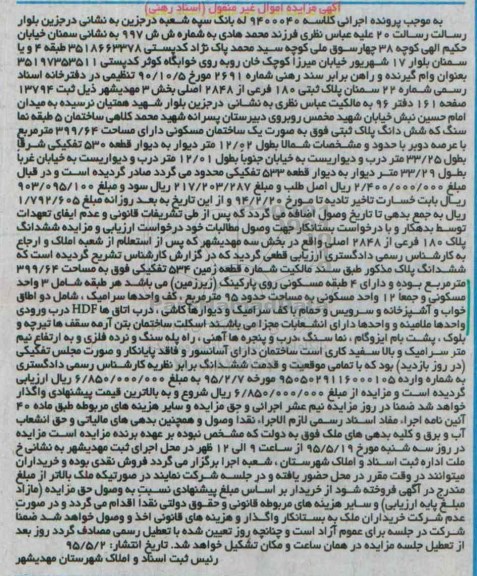 آگهی مزایده اموال غیر منقول (اسناد رهنی)
به موجب پرونده اجرائی کلاسه ۹۴۰۰۰۴۰ له بانک سپه شعبه درجزین به نشانی درجزین بلوار
رسالت رسالت ۲۰ علیه عباس نظری فرزند محمد هادی به شماره ش ش ۹۹۷ به نشانی سمنان خیابان
حکیم الهی کوچه ۳۸ چهارسوق ملی کوچه سید محمد پاک نژاد کدپستی ۳۵۱۸۶۶۳۳۷۸ طبقه ۴ و یا
سمنان بلوار ۱۷ شهریور خیابان میرزا کوچک خان روبه روی خوابگاه کوثر کدپستی ۳۵۱۹۷۳۵۳۵۱۱
بعنوان وام گیرنده و راهن برابر سند رهنی شماره ۲۶۹۱ مورخ ۹۰/۱۰/۵ تنظیمی در دفترخانه اسناد
رسمی شماره ۲۲ سمنان پلاک ثبتی ۱۸۰ فرعی از ۲۸۴۸ اصلی بخش ۳ مهدیشهر ذیل ثبت ۱۳۷۹۴
صفحه ۱۶۱ دفتر ۹۶ به مالکیت عباس نظری به نشانی درجزین بلوار شهید همتیان نرسیده به میدان
امام حسین نبش خیابان شهید مخمس روبروی دبیرستان پسرانه شهید محمد کلاهی ساختمان ۵ طبقه نما
سنگ که شش دانگ پلاک ثبتی فوق به صورت یک ساختمان مسکونی دارای مساحت ۳۹۹/۶۴ مترمربع
با عرصه دوبر با حدود و مشخصات شمالا بطول ۱۲/۰۲ متر دیوار به دیوار قطعه ۵۳۰ تفکیکی شرقا
بطول ۳۳/۲۵ متر درب و دیواریست به خیابان جنوبا بطول ۱۲/۰۱ متر درب و دیواریست به خیابان غربا
بطول ۳۳/۲۹ متر دیوار به دیوار قطعه ۵۳۳ تفکیکی محدود می گردد صادر گردیده است و در قبال
مبلغ ۲/۴۰۰/۰۰۰/۰۰۰ ریال اصل طلب و مبلغ ۲۱۷/۲۰۳/۲۸۷ ریال سود و مبلغ ۹۰۳/۰۹۵/۱۰۰
ریال بابت خسارت تاخیر تادیه تا مورخ ۹۴/۲/۲۰ و از این تاریخ به بعد روزانه مبلغ ۱/۷۹۲/۶۰۵
ریال به جمع بدهی تا تاریخ وصول اضافه می گردد که پس از طی تشریفات قانونی و عدم ایفای تعهدات
توسط بدهکار و با درخواست بستانکار جهت وصول مطالبات خود درخواست ارزیابی و مزایده ششدانگ
پلاک ۱۸۰ فرعی از ۲۸۴۸ اصلی واقع در بخش سه مهدیشهر که پس از استعلام از شعبه املاک و ارجاع
به کارشناس رسمی دادگستری ارزیابی قطعی گردید که در گزارش کارشناس تشریح گردیده است که
ششدانگ پلاک مذکور طبق سند مالکیت شماره قطعه زمین ۵۳۴ تفکیکی فوق به مساحت ۳۹۹/۶۴
مترمربع بوده و دارای ۴ طبقه مسکونی روی پارکینگ (زیرزمین) می باشد هر طبقه شامل ۳ واحد
مسکونی و جمعا ۱۲ واحد مسکونی به مساحت حدود ۹۵ مترمربع، کف واحدها سرامیک، شامل دو اطاق
خواب و آشپزخانه و سرویس و حمام با کف سرامیک و دیوارها کاشی، درب اتاق ها HDF درب ورودی
واحدها ملامینه و واحدها دارای انشعابات مجزا می باشند اسکلت ساختمان بتن آرمه سقف ها تیرچه و
بلوک، پشت بام ایزوگام، نما سنگ درب و پنجره ها آهنی، راه پله سنگ و نرده فلزی و به ارتفاع نیم
متر سرامیک و بالا سفید کاری است ساختمان دارای آسانسور و فاقد پایانکار و صورت مجلس تفکیکی
(در روز بازدید) بود که با تمامی موقعیت و قدمت ششدانگ برابر نظریه کارشناس رسمی دادگستری
به شماره وارده ۹۵۰۵۰۲۹۱۱۶۰۰۰۱۰۵ مورخه ۹۵/۲/۷ به مبلغ ۶/۸۵۰/۰۰۰/۰۰۰ ریال ارزیابی
گردیده است و مزایده از مبلغ ۶/۸۵۰/۰۰۰/۰۰۰ ریال شروع و به بالاترین قیمت پیشنهادی واگذار
خواهد شد ضمنا در روز مزایده نیم عشر اجرائی و حق مزایده و سایر هزینه های مربوطه طبق ماده ۴۰
آئین نامه اجرا، مفاد اسناد رسمی لازم الاجراء نقدا وصول و همچنین بدهی های مالیاتی و حق انشعاب
آب و برق و کلیه بدهی های ملک فوق به دولت که مشخص نبوده بر عهده برنده مزایده است مزایده
در روز سه شنبه مورخ ۹۵/۵/۱۹ از ساعت ۹ الی ۱۲ ظهر در محل اجرای ثبت مهدیشهر به نشانی خ
ملت اداره ثبت اسناد و املاک شهرستان، شعبه اجرا برگزار می گردد فروش نقدی بوده و خریداران
میتوانند در وقت مقرر در محل حضور یافته و در جلسه شرکت نمایند در صورتیکه ملک بالاتر از مبلغ
مندرج در آگهی فروخته شود از خریدار بر اساس مبلغ پیشنهادی نسبت به وصول حق مزایده (مازاد
مبلغ پایه ارزیابی) و سایر هزینه های مربوطه قانونی و حقوق دولتی نقدا اقدام می گردد و در صورت
عدم شرکت خریداران ملک به بستانکار واگذار و هزینه های قانونی اخذ و وصول خواهد شد ضمنا
شرکت در جلسه برای عموم آزاد است و چنانچه روز تعیین شده با تعطیل رسمی مصادف گردد روز بعد
از تعطیل جلسه مزایده در همان ساعت و مکان تشکیل خواهد شد. تاریخ انتشار: ۹۵/۵/۲
رئیس ثبت اسناد و املاک شهرستان مهدیشهر